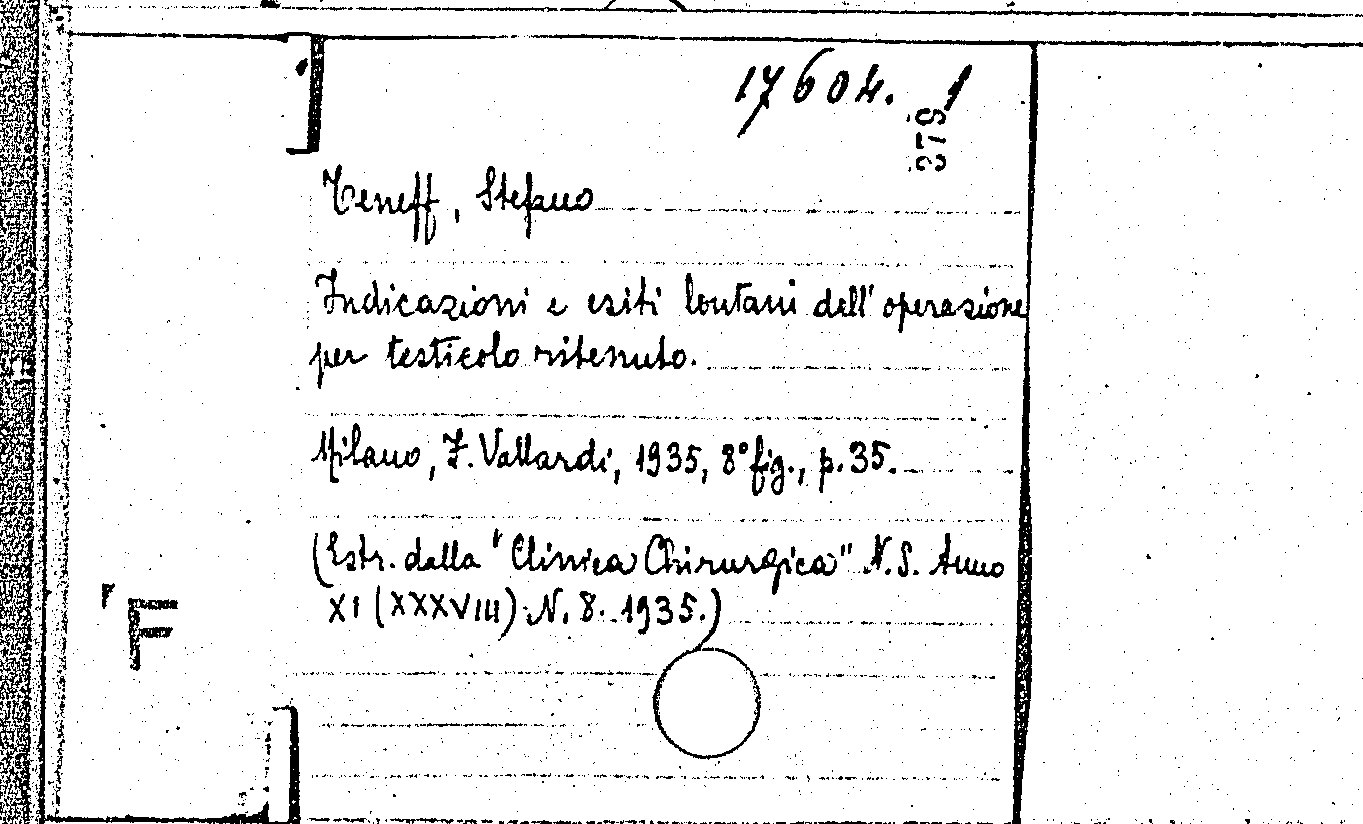 17604. 1
379
Teneff, Stefano
Indicazioni e esiti lontani dell'operazione
per testicolo ritenuto.
Milano, F. Vallardi, 1935, 8° fig., p. 35.
(Estr. dalla "Clinica Chirurgica" N. S. Anno
XI (XXXVIII) N. 8. 1935.)
F